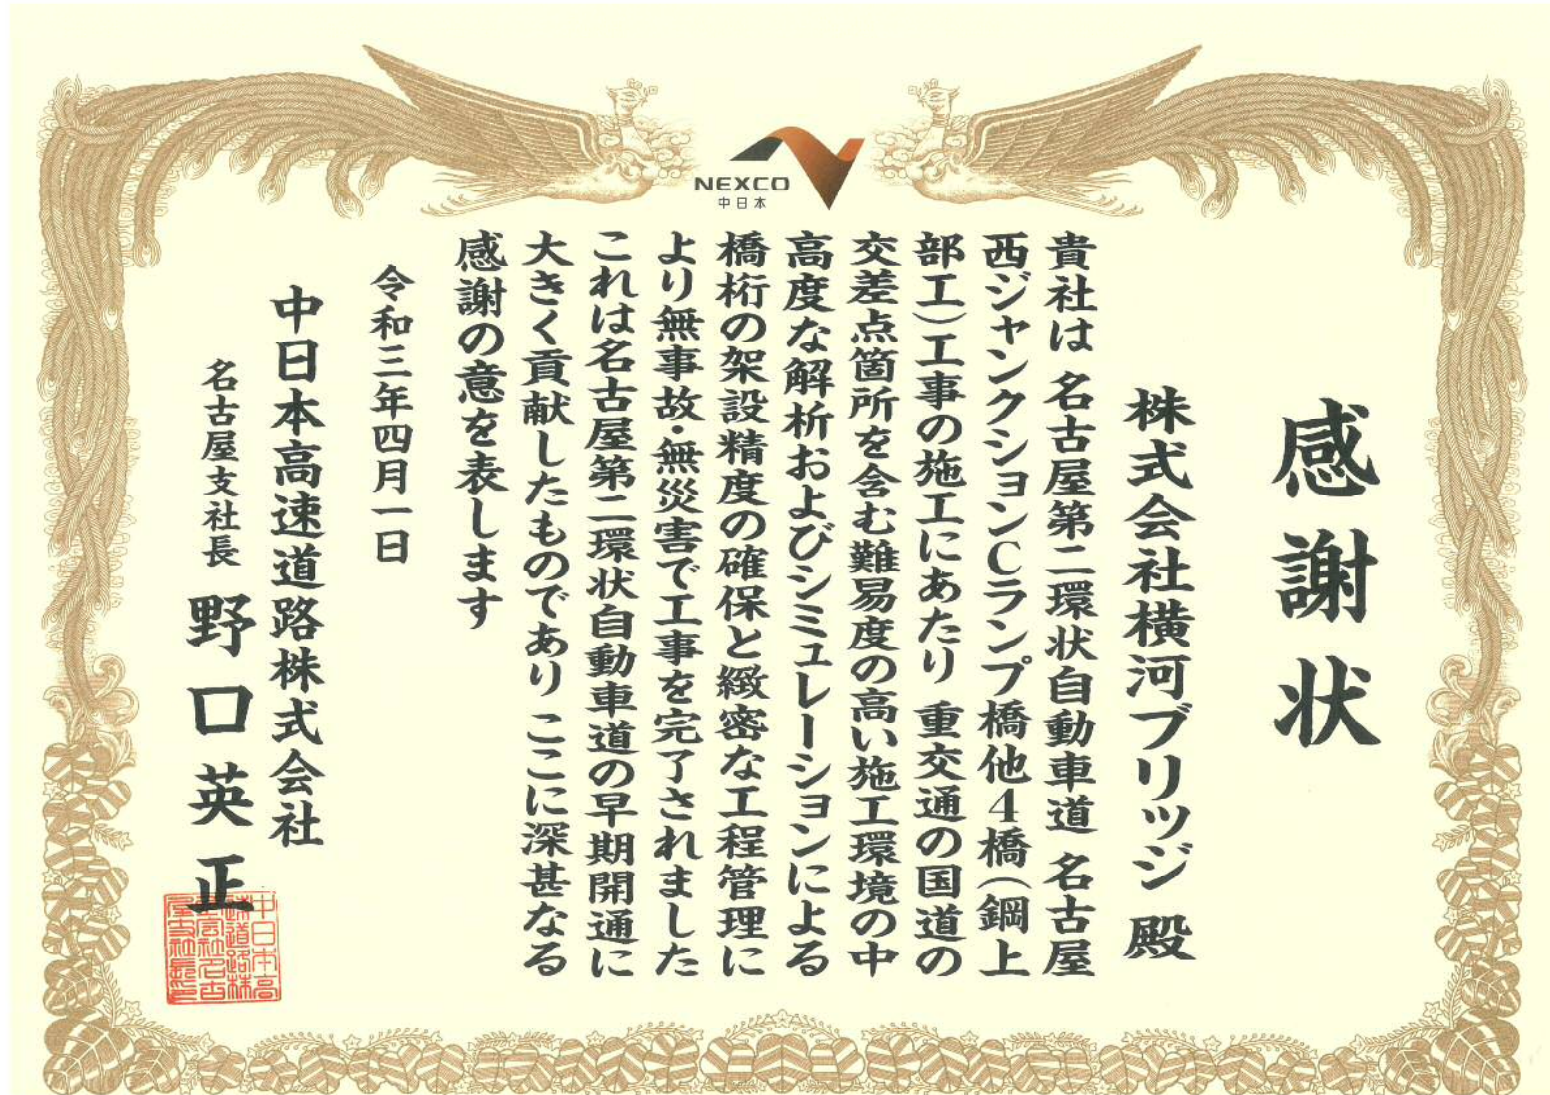 NEXCO
中日本
感謝状
株式会社横河ブリッジ 殿
貴社は 名古屋第二環状自動車道 名古屋
西ジャンクションCランプ橋他4橋(鋼上
部工)工事の施工にあたり 重交通の国道の
交差点箇所を含む難易度の高い施工環境の中
高度な解析およびシミュレーションによる
橋桁の架設精度の確保と緻密な工程管理に
より無事故・無災害で工事を完了されました
これは名古屋第二環状自動車道の早期開通に
大きく貢献したものであり ここに深甚なる
感謝の意を表します
令和三年四月一日
中日本高速道路株式会社
名古屋支社長 野口英正
中日本高
速道路株
式会社名古
屋支社長印